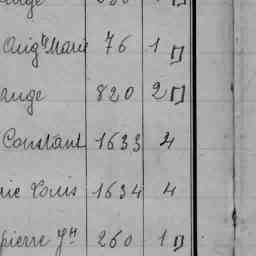 Ang^le Marie 76 1 []
ange 820 2 []
Constant 1633 4
rie Louis 1634 4
pierre J^h 260 1 []